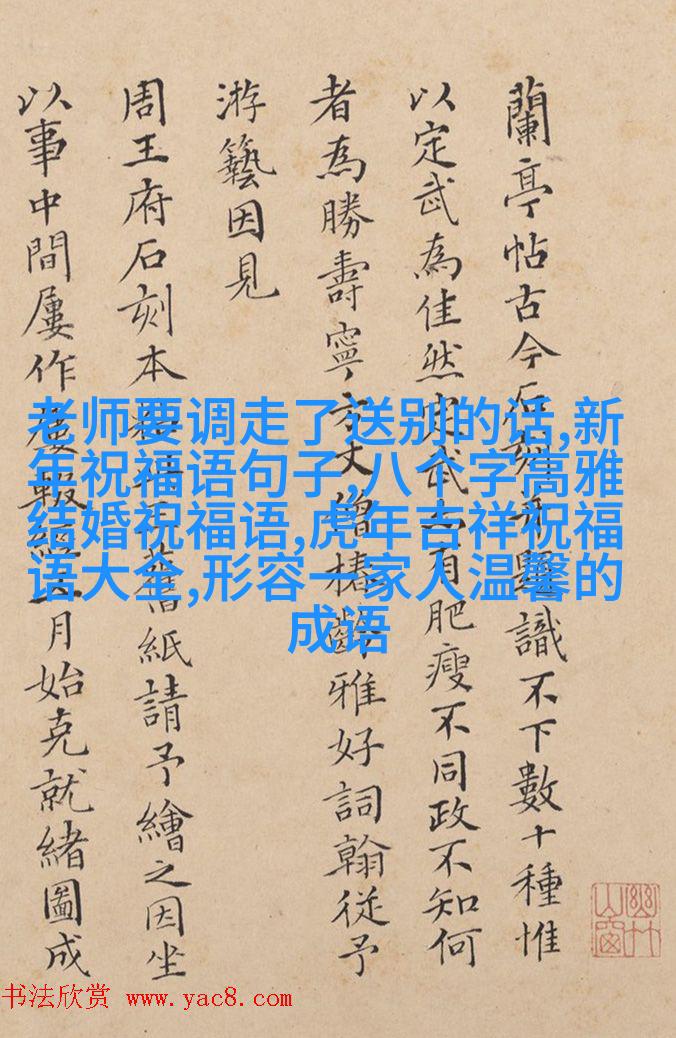 蘭亭帖古今石刻題識不下數十種惟
以定武為佳然定武有肥瘦不同政不知何
者為勝壽寧方丈僧椿齡雅好詞翰從予
游藝因見
周王府石刻本舊紙請予繪之因坐
以事中間屢作屢輟經月始克就緒圖成
老师要调走了送别的话,新
年祝福语句子,八个字高雅
结婚祝福语,虎年吉祥祝福
语大全,形容一家人温馨的
成语
幽竹
山窗
书法欣赏 www.yac8.com